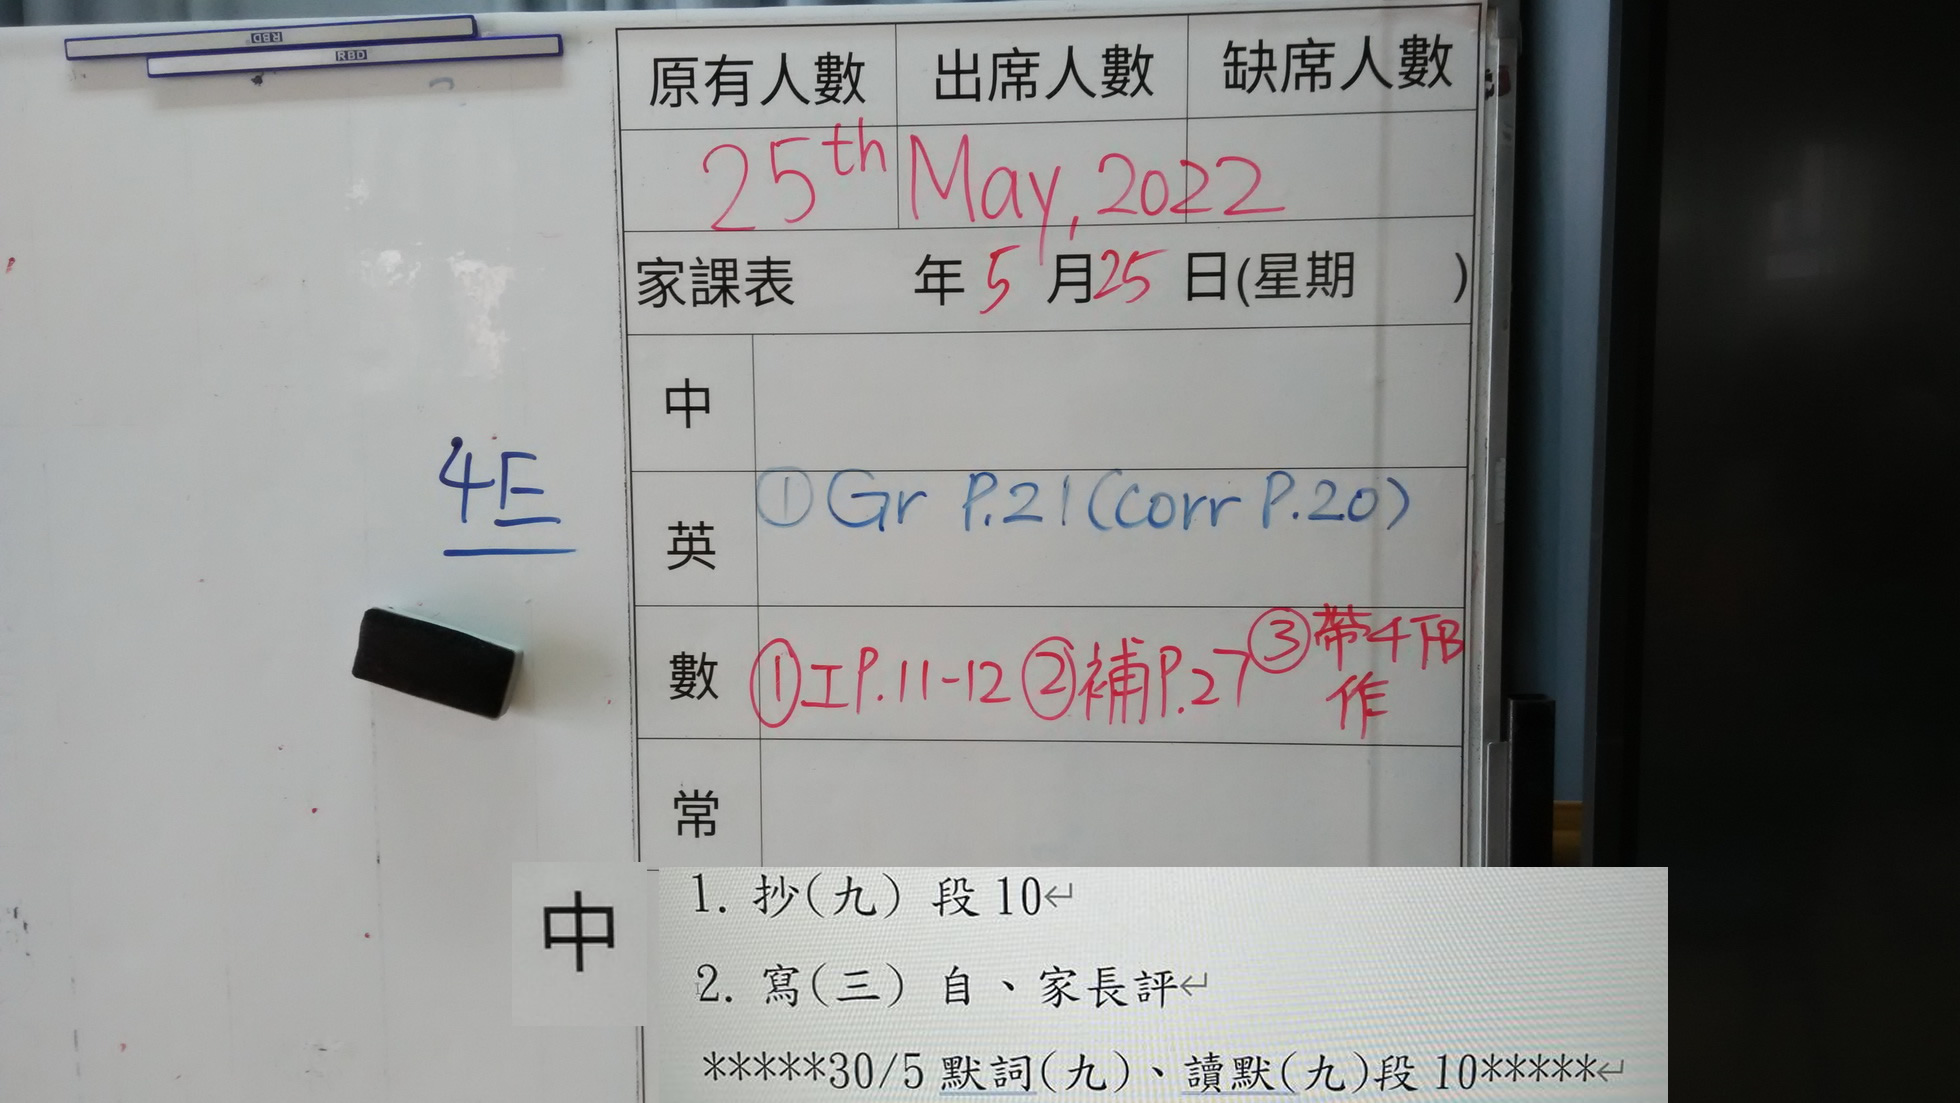 RBD
RBD
原有人數 出席人數 缺席人數
25th May, 2022
家課表 年 5 月 25 日(星期 )
中
4E
英 ① Gr P.21 (corr P.20)
數 ①工P.11-12 ②補P.27 ③帶4下B
作
常
中
1. 抄(九) 段 10↵
2. 寫(三) 自、家長評↵
*****30/5 默詞(九)、讀默(九)段 10*****↵